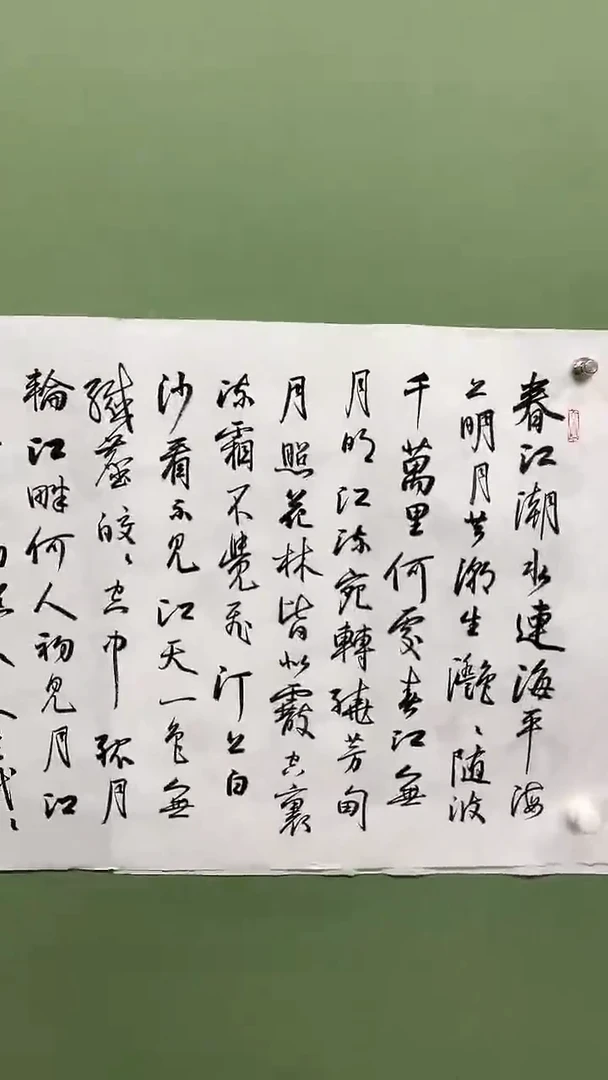 春江潮水連海平海
上明月共潮生灩〻随波
千萬里何處春江無
月明江流宛轉繞芳甸
月照花林皆似霰空裏
流霜不覺飛汀上白
沙看不見江天一色無
纖塵皎〻空中孤月
輪江畔何人初見月江
人人生代〻